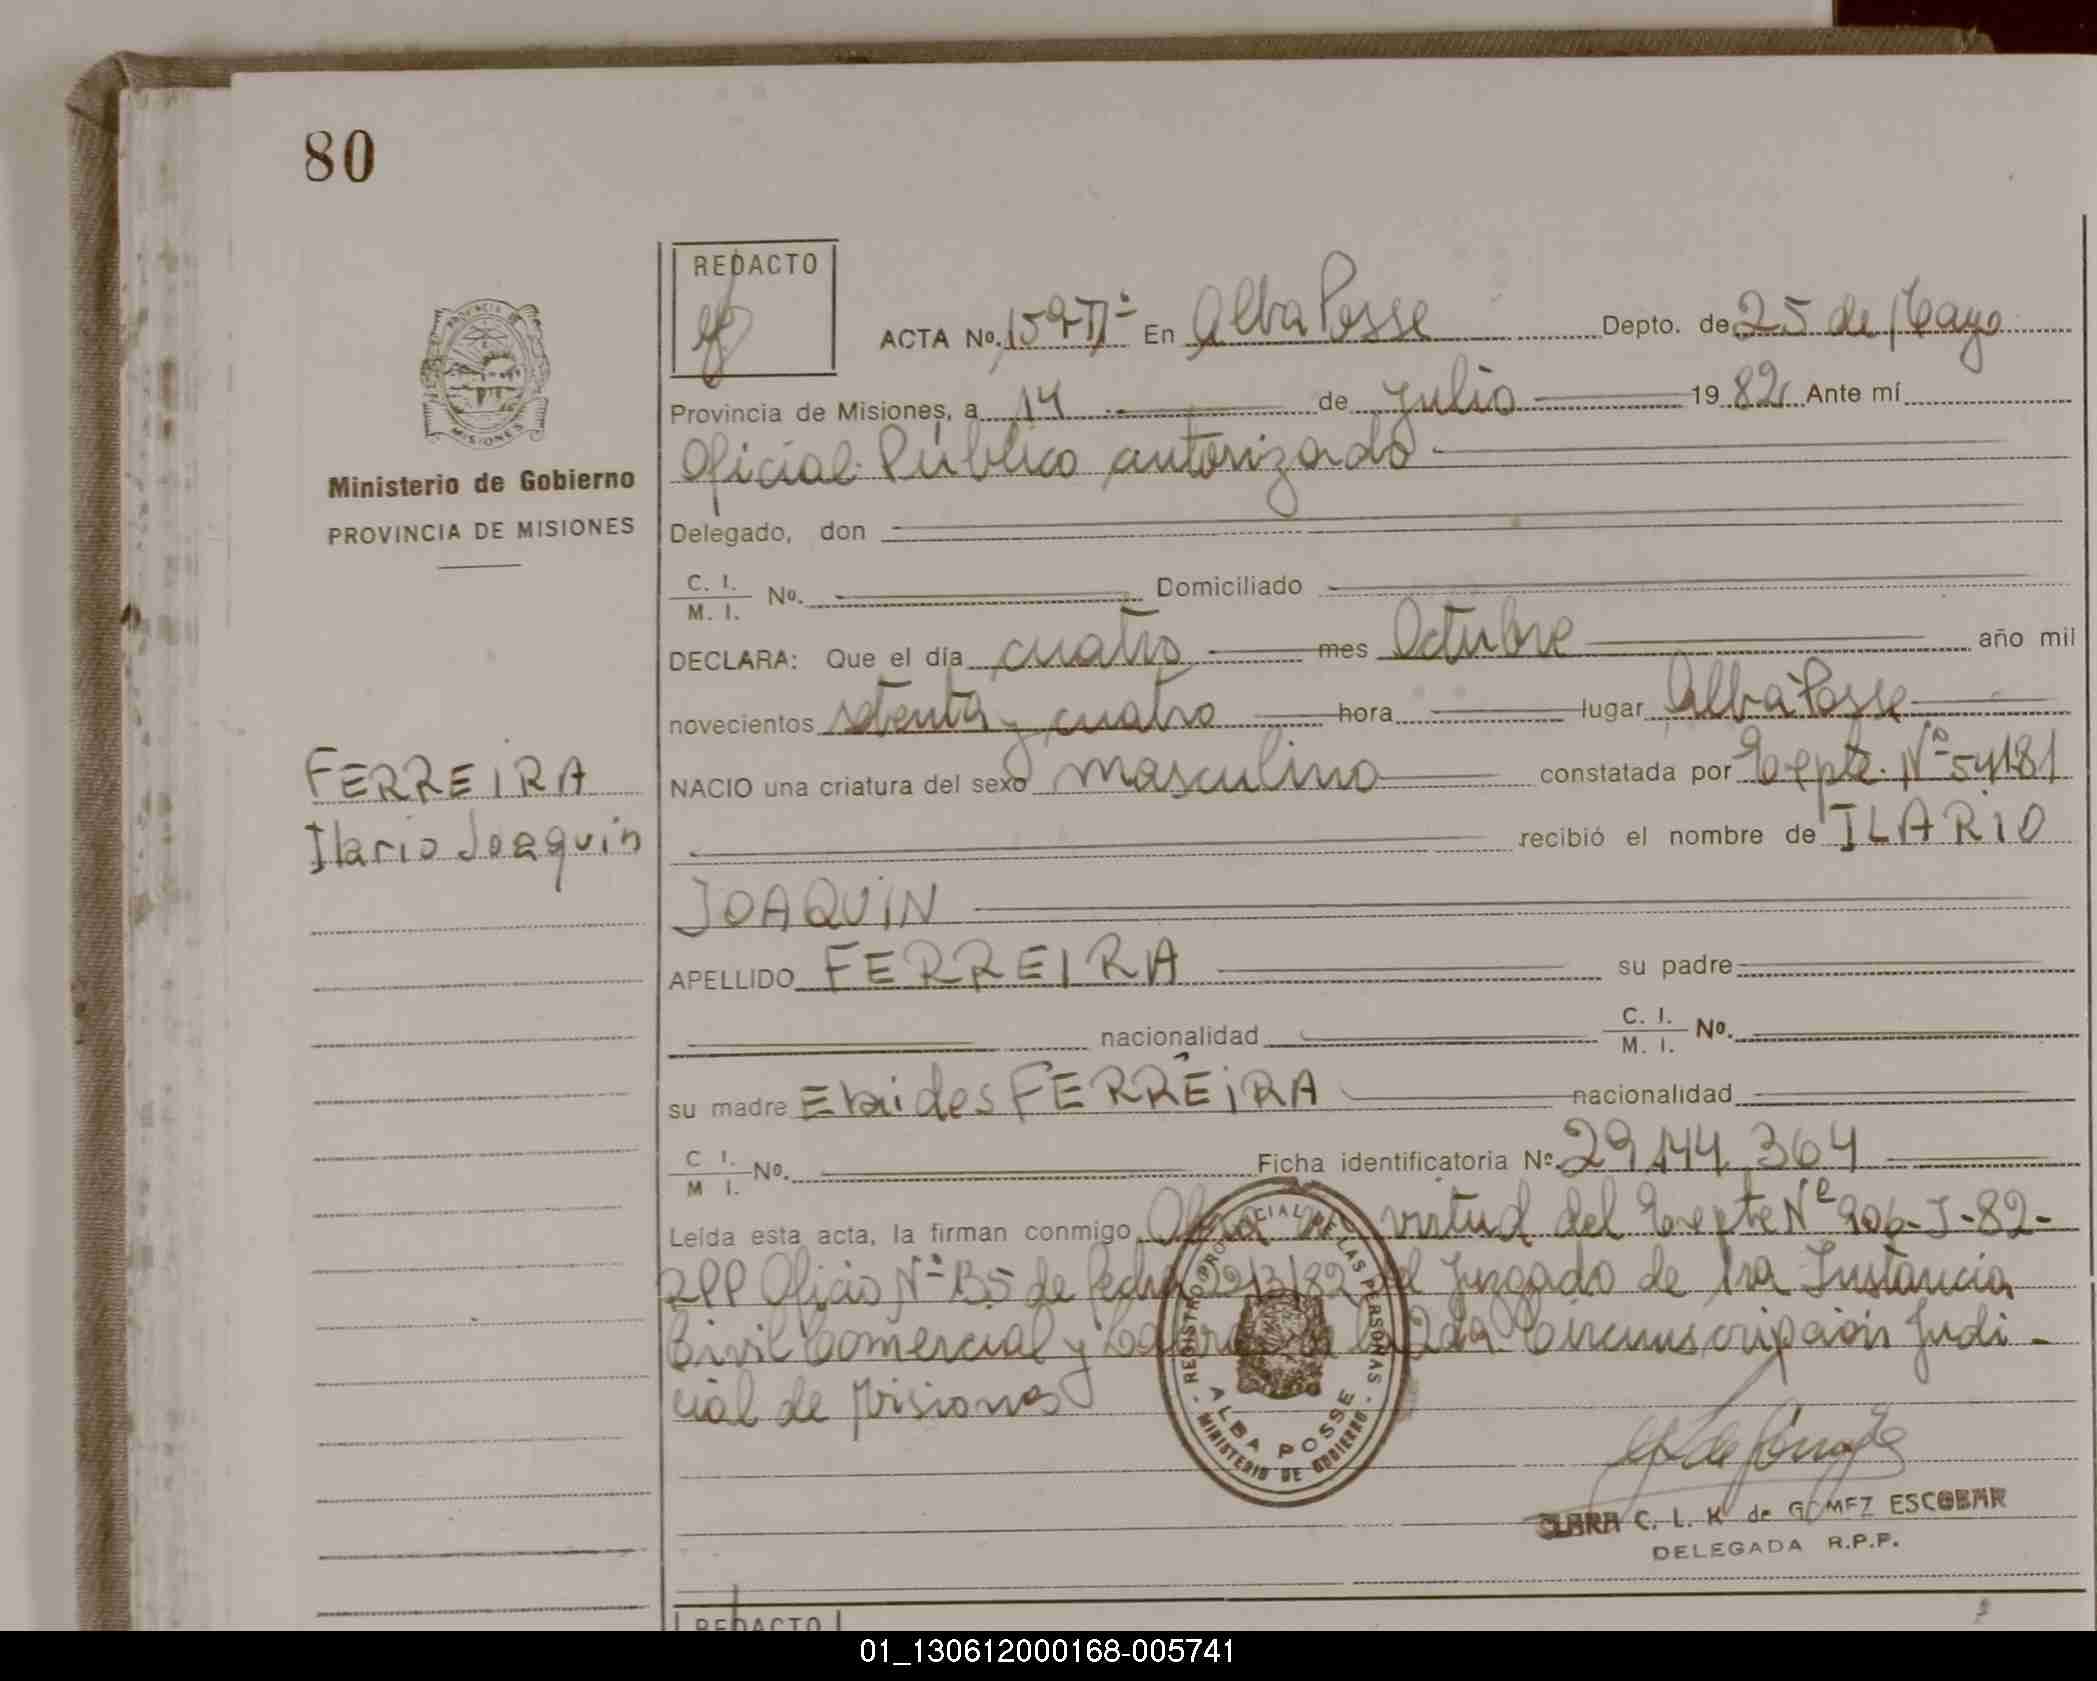 80
REDACTO
ACTA No. 159-TIIº En Alba Posse Depto. de 25 de Mayo
Provincia de Misiones, a 14 de Julio 1982 Ante mí
Oficial Público autorizado
PROVINCIA DE MISIONES
Ministerio de Gobierno
PROVINCIA DE MISIONES
Delegado, don
C. I.
M. I. No. Domiciliado
DECLARA: Que el día cuatro mes Octubre año mil
novecientos setenta y cuatro hora lugar Alba Posse
NACIO una criatura del sexo masculino constatada por Expte. Nº 54181
FERREIRA
Ilario Joaquin
recibió el nombre de ILARIO
JOAQUIN
APELLIDO FERREIRA su padre
nacionalidad C. I.
M. I. No.
su madre FERREIRA nacionalidad
C I.
M I. No. Ficha identificatoria Nº 29.144.364
Leída esta acta, la firman conmigo Obra en virtud del Expte Nº 906-J-82-
RPP Oficio Nº 135 de fecha 22/3/82 del Juzgado de 1ra Instancia
Civil Comercial y Laboral de la 2da Circunscripción Judi-
cial de Misiones
REGISTRO PROVINCIAL DE LAS PERSONAS
ALBA POSSE
MINISTERIO DE GOBIERNO
CLARA C. L. K. de GOMEZ ESCOBAR
DELEGADA R.P.P.
REDACTO
01_130612000168-005741